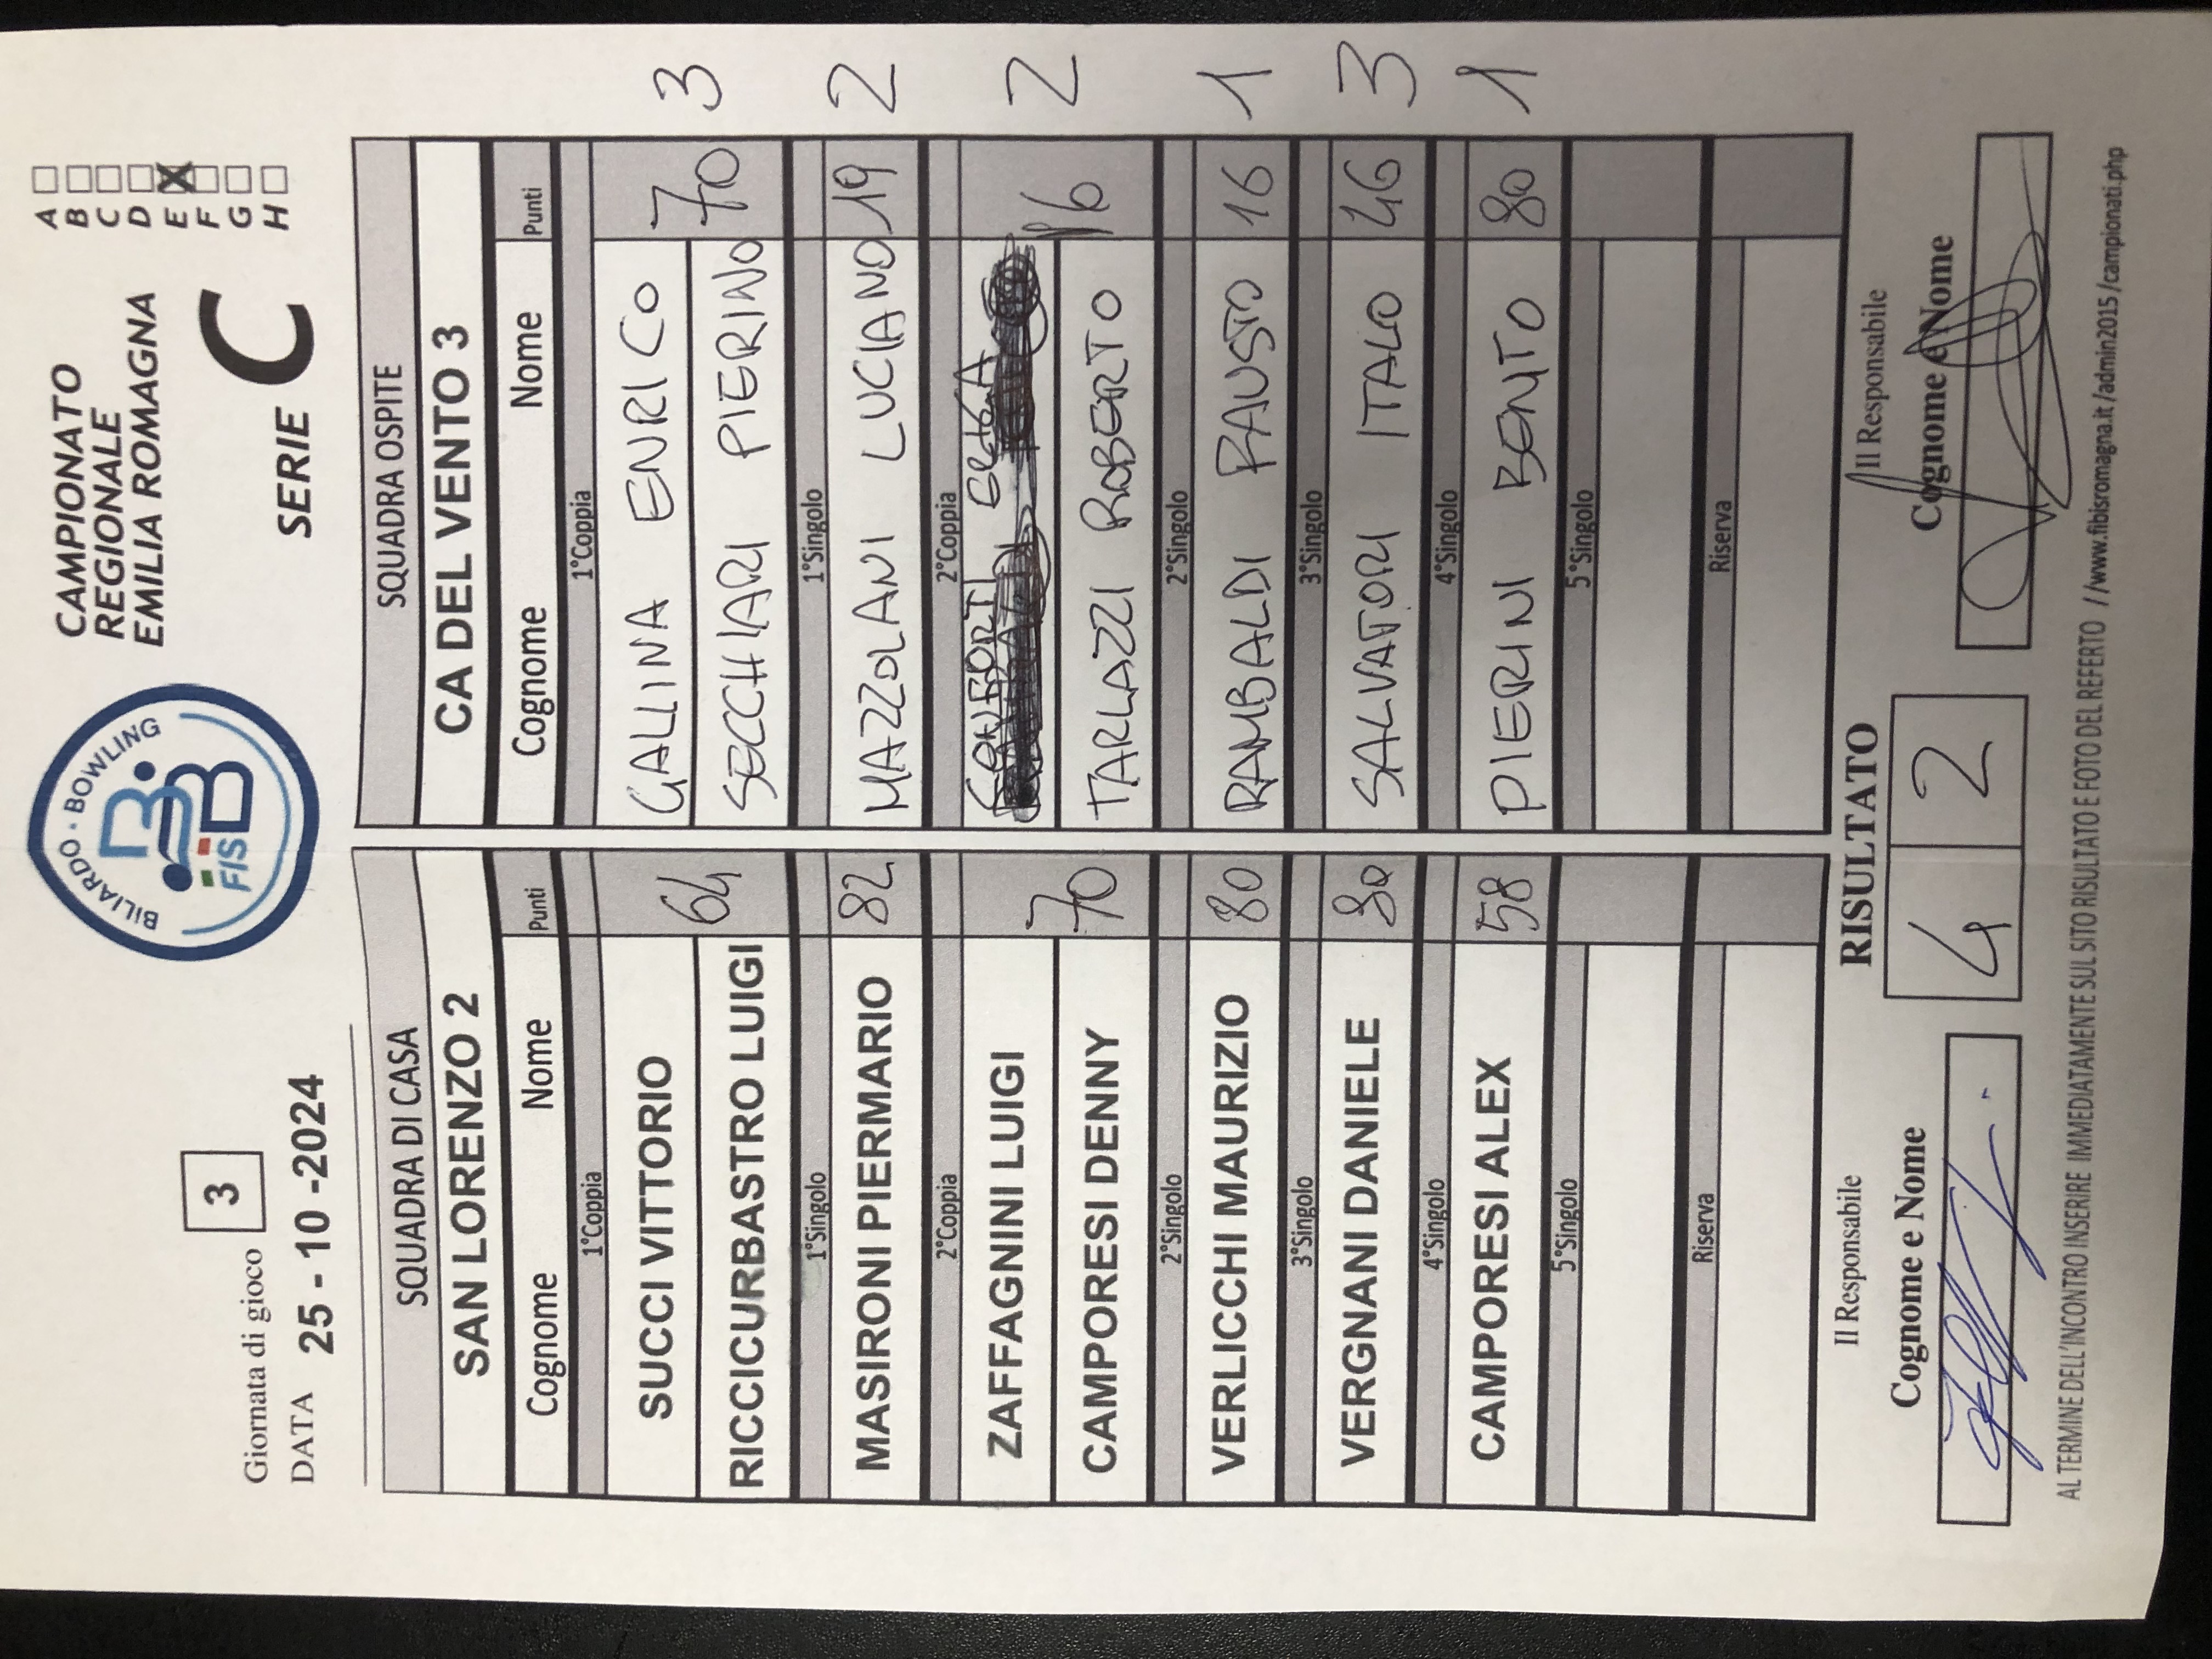 Giornata di gioco 3
DATA 25 - 10 -2024
BILIARDO · BOWLING
FISBB
CAMPIONATO
REGIONALE
EMILIA ROMAGNA
SERIE C
A
B
C
D
E X
F
G
H
SQUADRA DI CASA
SAN LORENZO 2
Cognome Nome Punti
1°Coppia
SUCCI VITTORIO
RICCICURBASTRO LUIGI 64
1°Singolo
MASIRONI PIERMARIO 82
2°Coppia
ZAFFAGNINI LUIGI
CAMPORESI DENNY 70
2°Singolo
VERLICCHI MAURIZIO 80
3°Singolo
VERGNANI DANIELE 80
4°Singolo
CAMPORESI ALEX 58
5°Singolo
Riserva
SQUADRA OSPITE
CA DEL VENTO 3
Cognome Nome Punti
1°Coppia
GALLINA ENRICO
SECCHIARI PIERINO 70 3
1°Singolo
MAZZOLANI LUCIANO 19 2
2°Coppia
CONFORTI
TARLAZZI ROBERTO 16 2
2°Singolo
RAMBALDI FAUSTO 16 1
3°Singolo
SALVATORI ITALO 46 3
4°Singolo
PIERINI BENITO 80 1
5°Singolo
Riserva
Il Responsabile
Cognome e Nome
RISULTATO
4 2
Il Responsabile
Cognome e Nome
AL TERMINE DELL'INCONTRO INSERIRE IMMEDIATAMENTE SUL SITO RISULTATO E FOTO DEL REFERTO //www.fibisromagna.it/admin2015/campionati.php